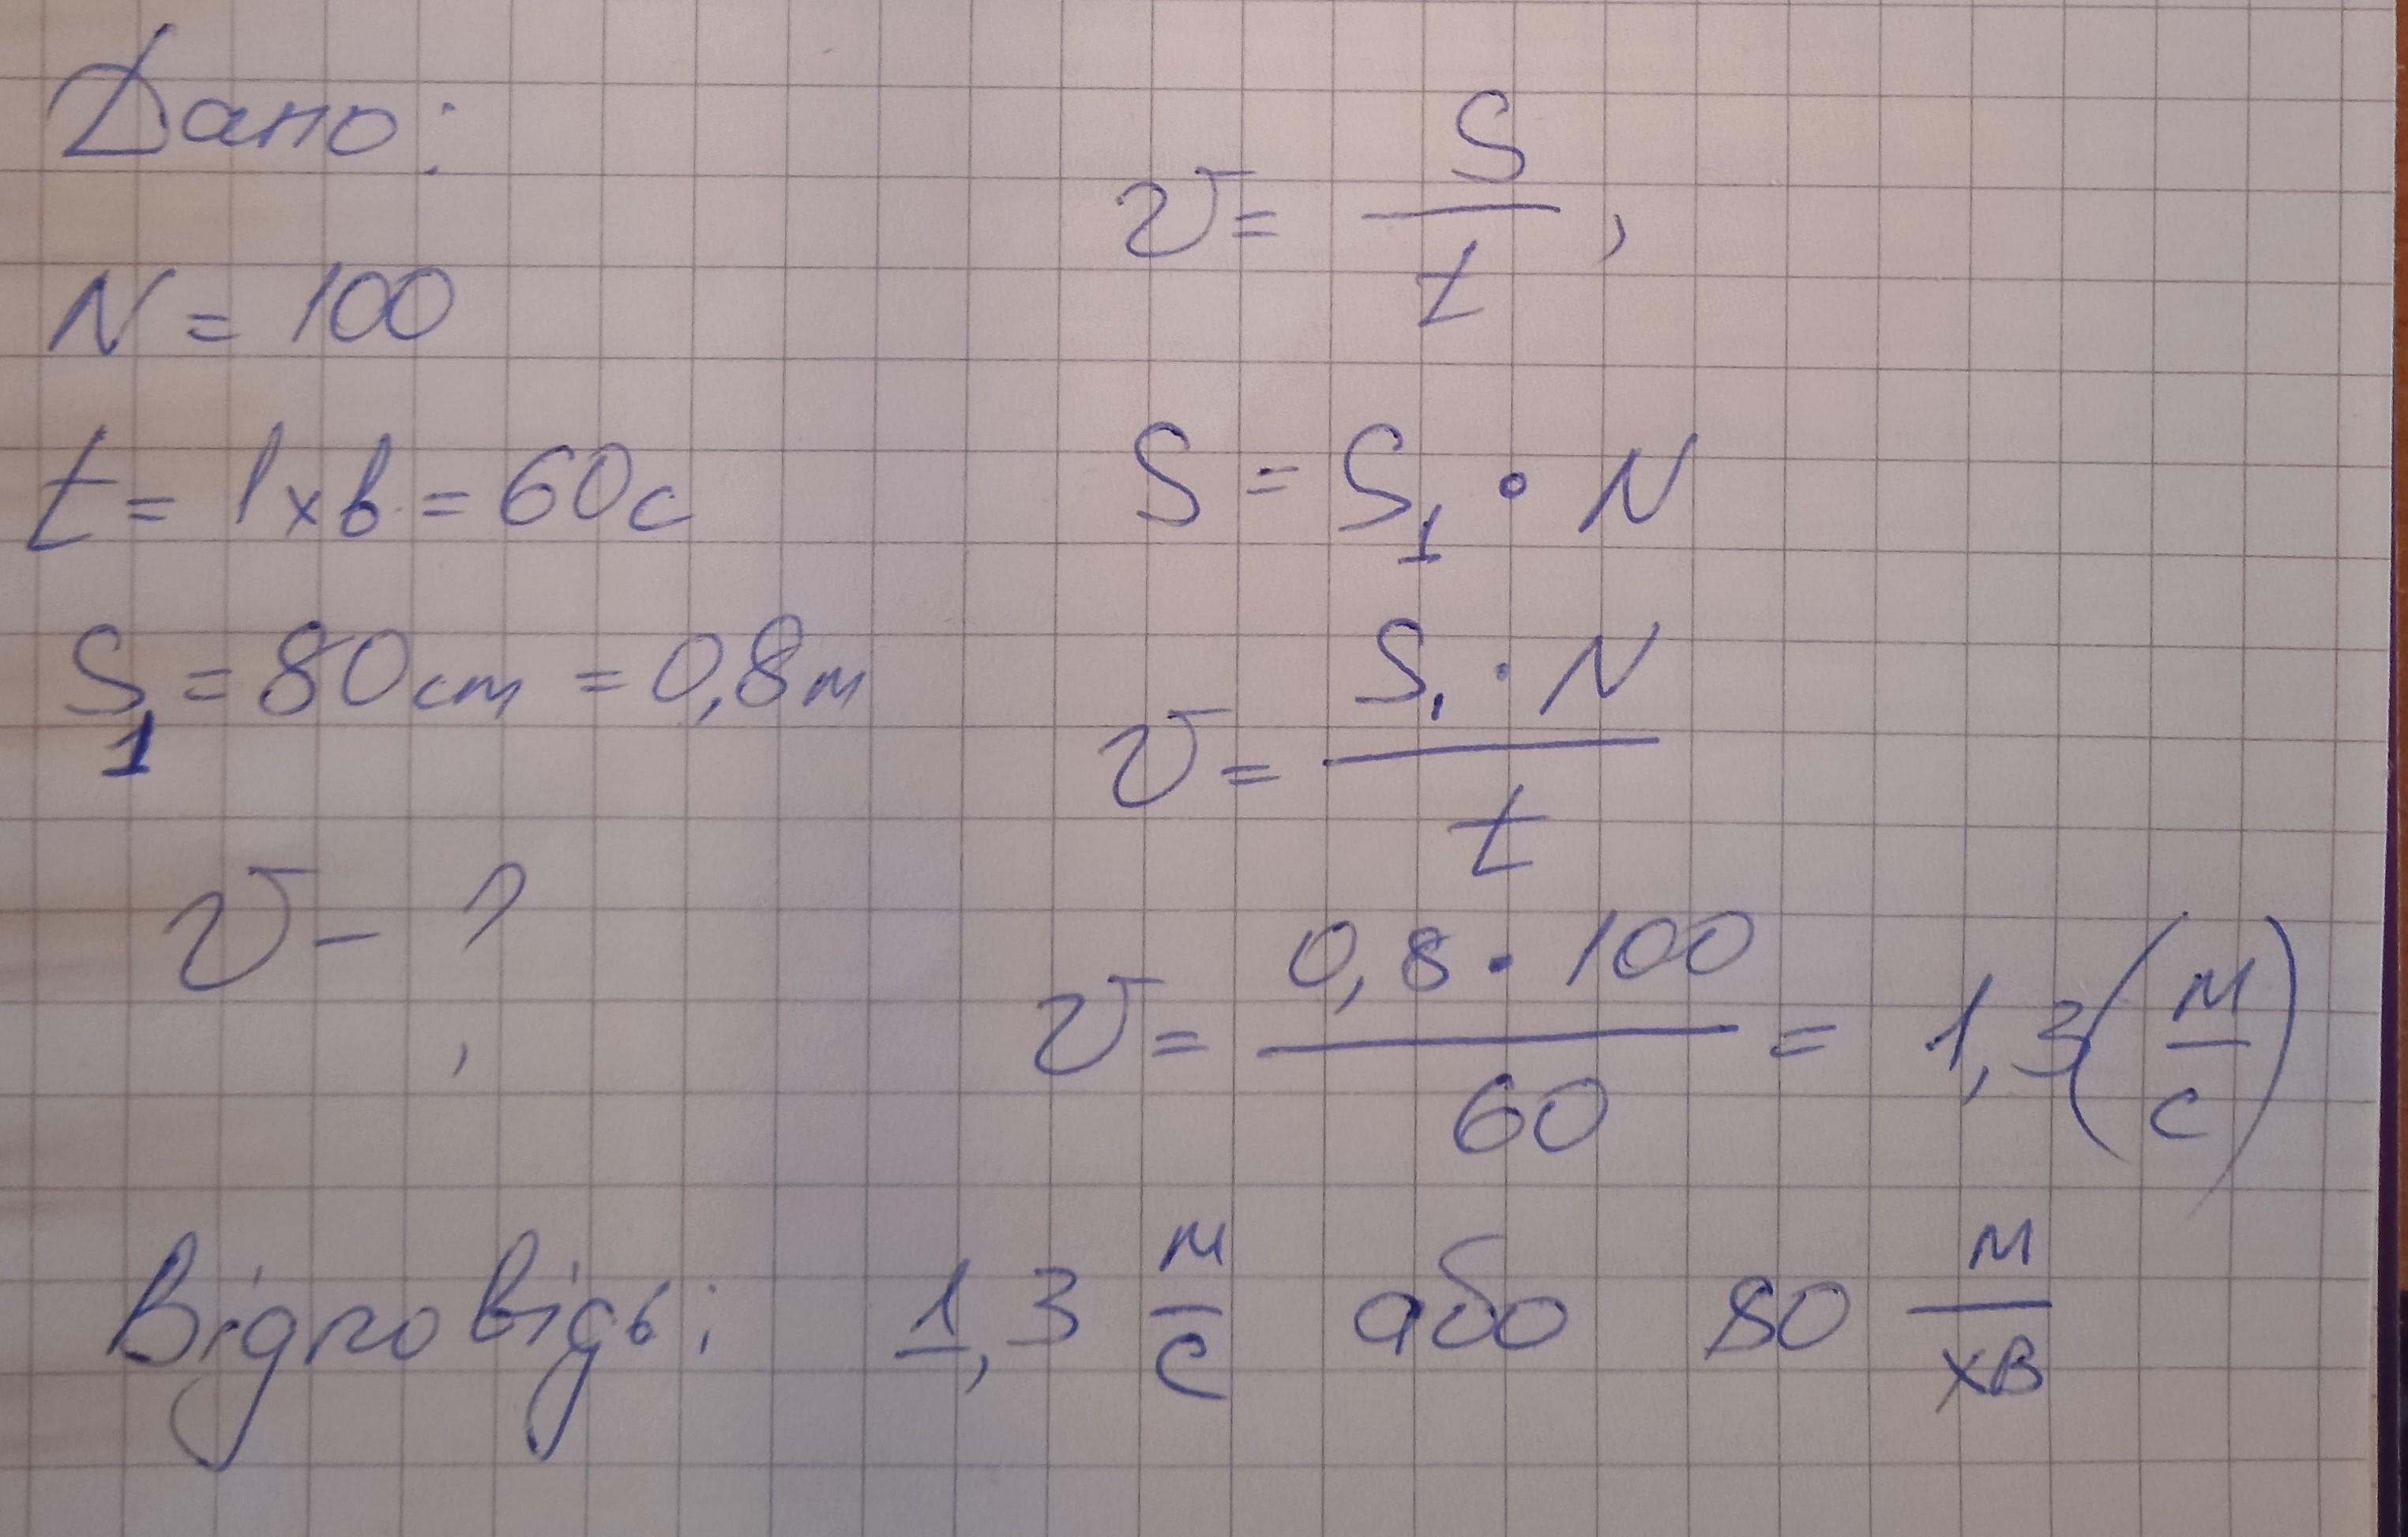 Дано:
N = 100
t = 1хв = 60с
S₁ = 80см = 0,8м
v - ?
v = S/t,
S = S₁ · N
v = S₁ · N / t
v = 0,8 · 100 / 60 = 1,3 (м/с)
Відповідь: 1,3 м/с або 80 м/хв